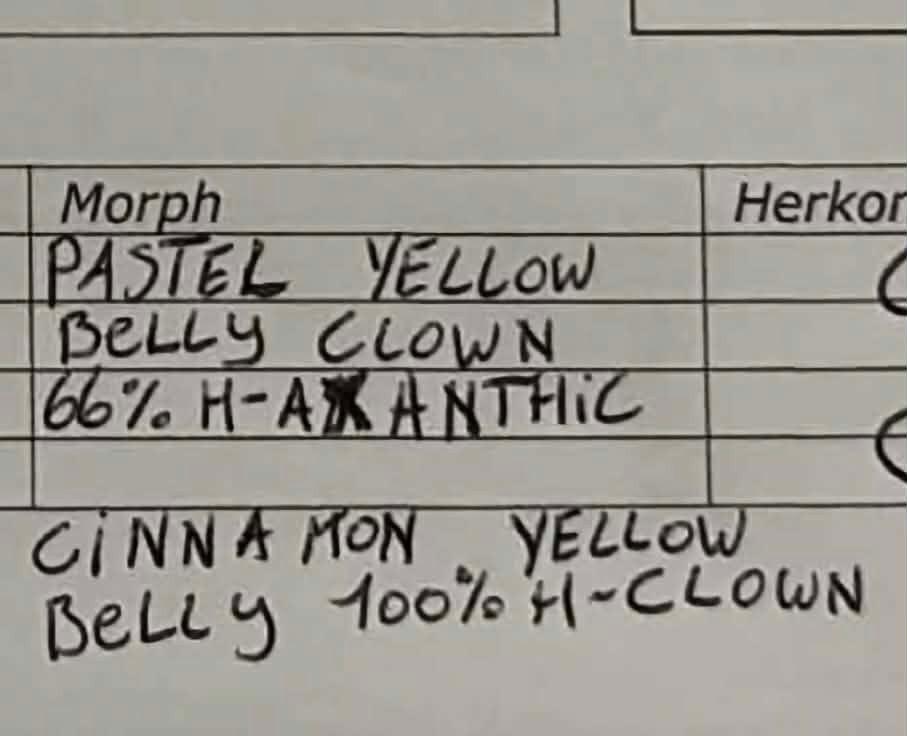 Morph
PASTEL YELLOW
BeLLy CLOWN
66% H-AXANTHiC
CiNNAMON YELLOW
BeLLy 100% H-CLOWN